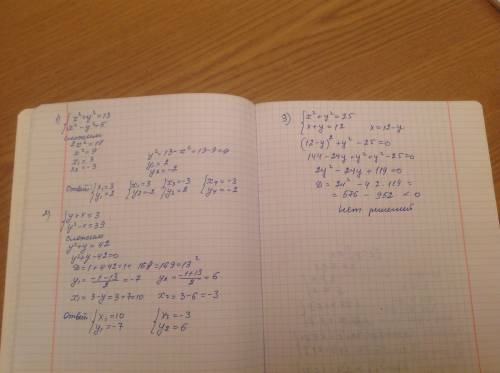 1) { x² + y² = 13
x² - y² = 5
сложим
2x² = 18
x² = 9
x₁ = 3
x₂ = -3
y² = 13 - x² = 13 - 9 = 4
y₁ = 2
y₂ = -2
Ответ: { x₁ = 3 { x₂ = 3 { x₃ = -3 { x₄ = -3
y₁ = 2 y₂ = -2 y₃ = 2 y₄ = -2
2) { y + x = 3
y² - x = 39
сложим
y² + y = 42
y² + y - 42 = 0
D = 1 + 4·42 = 1 + 168 = 169 = 13²
y₁ = (-1-13)/2 = -7 y₂ = (-1+13)/2 = 6
x₁ = 3 - y = 3 + 7 = 10 x₂ = 3 - 6 = -3
Ответ: { x₁ = 10 { x₂ = -3
y₁ = -7 y₂ = 6
3) { x² + y² = 25
x + y = 12 x = 12 - y
(12 - y)² + y² - 25 = 0
144 - 24y + y² + y² - 25 = 0
2y² - 24y + 119 = 0
D = 24² - 4·2·119 =
= 576 - 952 < 0
Нет решений